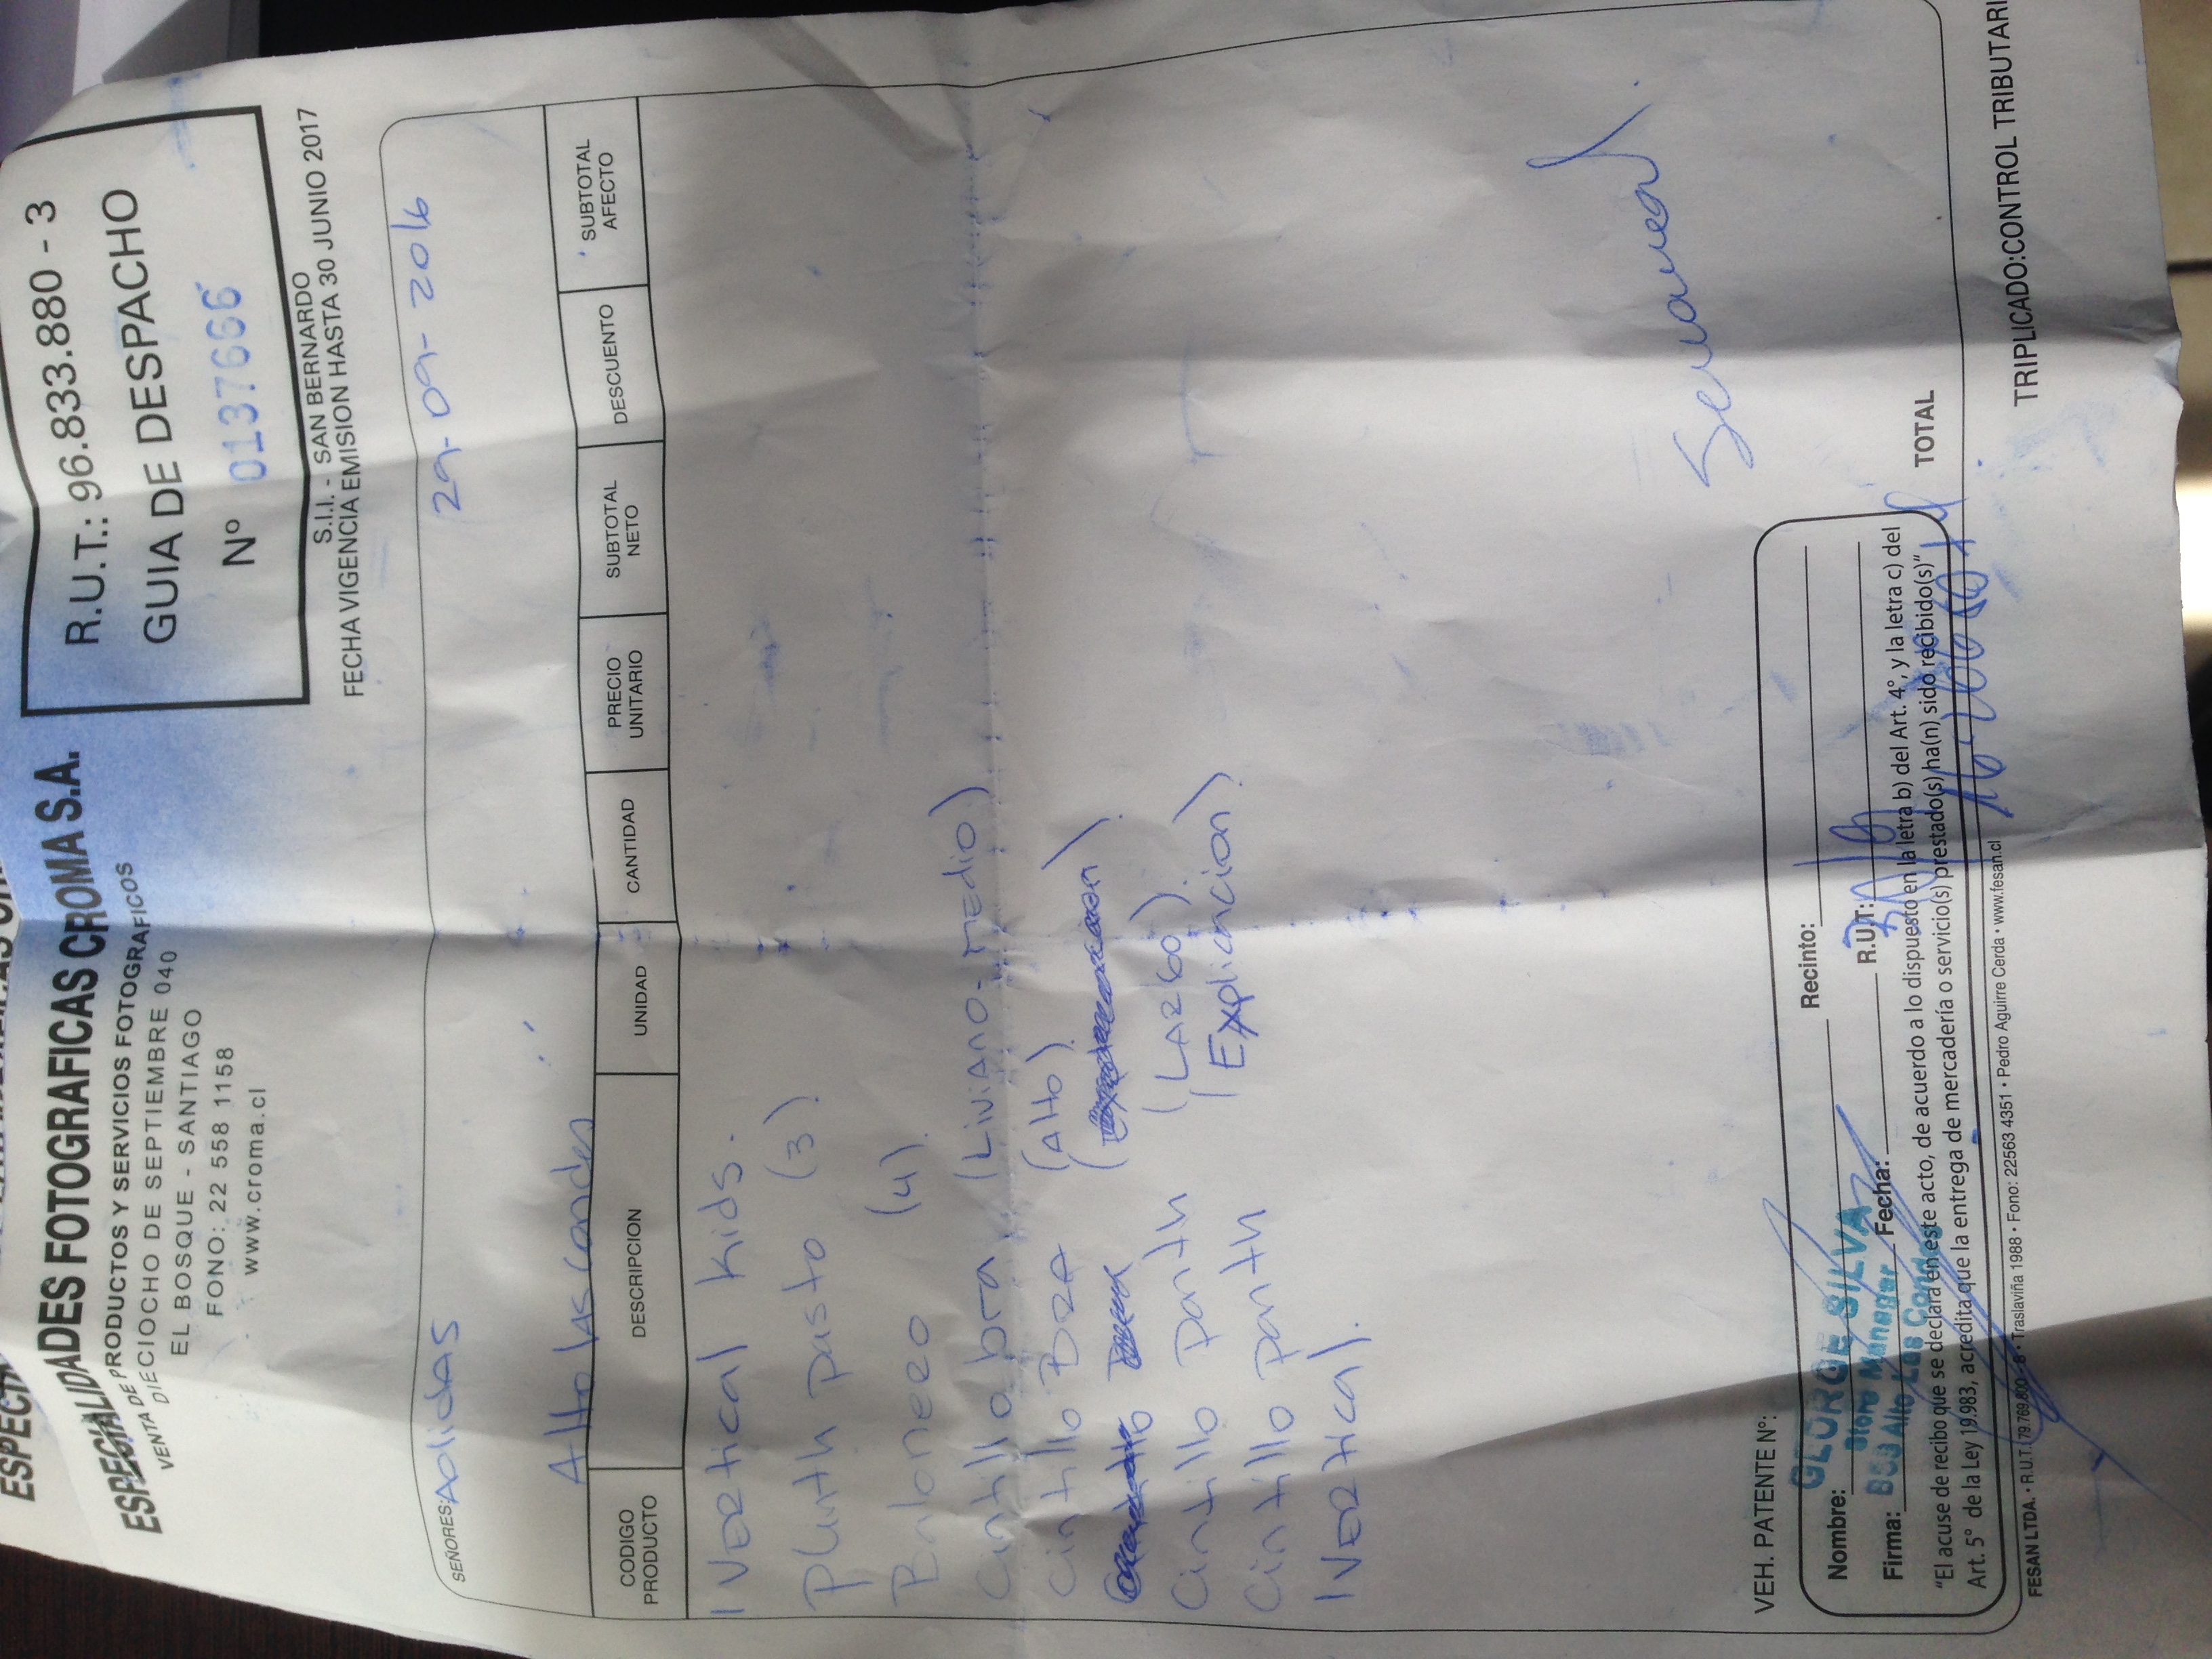 ESPECIALIDADES FOTOGRAFICAS CROMA S.A.
VENTA DE PRODUCTOS Y SERVICIOS FOTOGRAFICOS
DIECIOCHO DE SEPTIEMBRE 040
EL BOSQUE - SANTIAGO
FONO: 22 558 1158
www.croma.cl
R.U.T.: 96.833.880 - 3
GUIA DE DESPACHO
Nº 0137666
S.I.I. - SAN BERNARDO
FECHA VIGENCIA EMISION HASTA 30 JUNIO 2017
SEÑORES: Adidas 29-09-2016
Alto las condes
CODIGO PRODUCTO DESCRIPCION UNIDAD CANTIDAD PRECIO UNITARIO SUBTOTAL NETO DESCUENTO SUBTOTAL AFECTO
1 VERTical Kids.
Plinth pasto (3).
Balonero (4).
Cintillo bra (LiviANO-MEDIO)
Cintillo BRA (Alto).
Cintillo Panth (LARGO).
Cintillo panth (Explicacion)
1 VERTical.
VEH. PATENTE Nº:
Nombre: GEORGE SILVA Recinto:
Store Manager
Firma: Fecha: R.U.T:
BSG Alto Las Condes
"El acuse de recibo que se declara en este acto, de acuerdo a lo dispuesto en la letra b) del Art. 4º, y la letra c) del
Art. 5º de la Ley 19.983, acredita que la entrega de mercadería o servicio(s) prestado(s) ha(n) sido recibido(s)"
TOTAL
FESAN LTDA. • R.U.T. 79.769.800-6 • Traslaviña 1988 • Fono: 22563 4351 • Pedro Aguirre Cerda • www.fesan.cl
TRIPLICADO:CONTROL TRIBUTARI